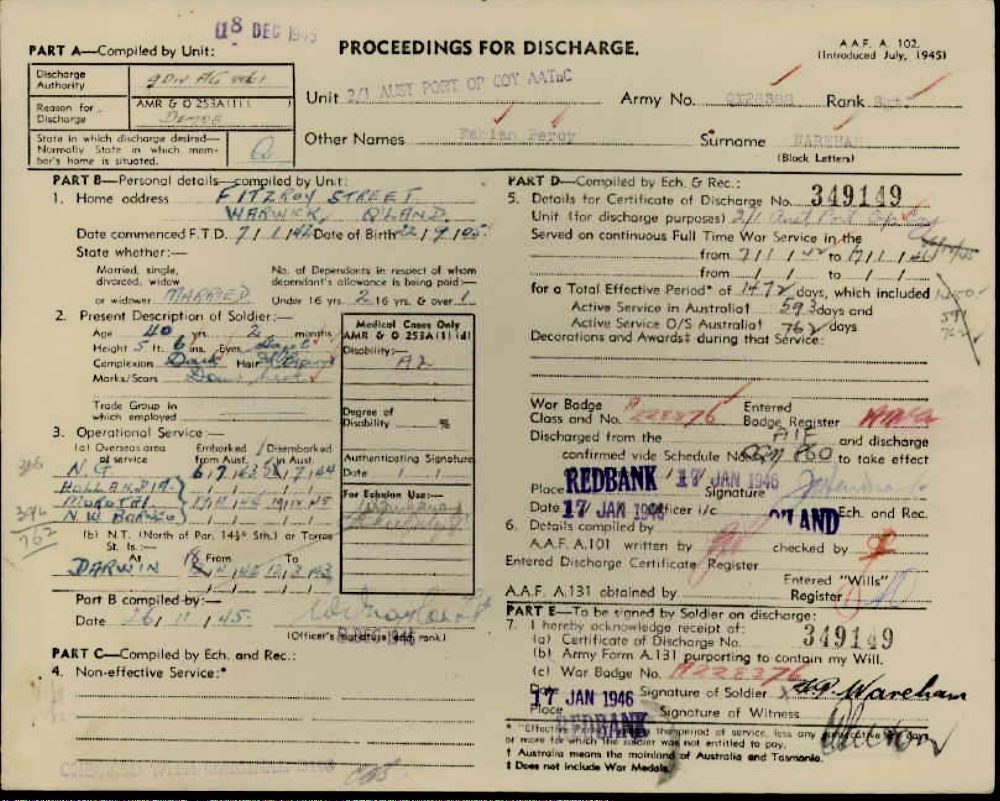 18 DEC 1945
PART A—Compiled by Unit:
PROCEEDINGS FOR DISCHARGE.
A.A.F. A. 102.
(Introduced July, 1945)
Discharge
Authority
Reason for
Discharge
AMR & O 253A(1)(
DEMOB
State in which discharge desired—
Normally State in which mem-
ber's home is situated.
Q
Unit 2/1 AUST PORT OP COY AATnC
Army No. Rank
Other Names Fabian Percy Surname WAREHAM
(Block Letters)
PART B—Personal details—compiled by Unit:
1. Home address FITZROY STREET
WARWICK, Q'LAND.
Date commenced F.T.D. 7 / 1 / 42 Date of Birth 22 / 9 / 05
State whether:—
Married, single,
divorced, widow
or widower MARRIED
No. of Dependents in respect of whom
dependant's allowance is being paid:—
Under 16 yrs. 2 16 yrs. & over 1
2. Present Description of Soldier:—
Age 40 yrs. 2 months
Height 5 ft. 6 ins. Eyes
Complexion Dark Hair
Marks/Scars
Trade Group in
which employed
Medical Cases Only
AMR & O 253A(1)(d)
Disability:—
A2
Degree of
Disability %
Authenticating Signature
Date / /
For Echelon Use:—
3. Operational Service:—
(a) Overseas area
of service
Embarked
from Aust.
Disembarked
in Aust.
396
N.G. 6 / 7 / 43 / 7 / 44
HOLLANDIA
MOROTAI
N.W. BORNEO
762
(b) N.T. (North of Par. 14½° Sth.) or Torres
St. Is.:—
At From To
DARWIN
Part B compiled by:—
Date 26 / 11 / 45
(Officer's signature and rank)
PART C—Compiled by Ech. and Rec.:
4. Non-effective Service:*
PART D—Compiled by Ech. & Rec.:
5. Details for Certificate of Discharge No. 349149
Unit (for discharge purposes) 2/1 Aust Port Op Coy
Served on continuous Full Time War Service in the
from 7 / 1 / 42 to 17 / 1 / 46
from / / to / /
for a Total Effective Period* of 1472 days, which included
Active Service in Australia† 593 days and
Active Service O/S Australia† 762 days
Decorations and Awards‡ during that Service:
War Badge
Class and No. A228276
Entered
Badge Register
Discharged from the AIF and discharge
confirmed vide Schedule No. to take effect
Place REDBANK 17 JAN 1946 Signature
Date 17 JAN 1946 Officer i/c Q'LAND Ech. and Rec.
6. Details compiled by
A.A.F. A.101 written by checked by
Entered Discharge Certificate Register
A.A.F. A.131 obtained by
Entered "Wills"
Register
PART E—To be signed by Soldier on discharge:
7. I hereby acknowledge receipt of:
(a) Certificate of Discharge No. 349149
(b) Army Form A.131 purporting to contain my Will.
(c) War Badge No. A228276
Date 17 JAN 1946 Signature of Soldier F.P. Wareham
Place REDBANK Signature of Witness
* "Effective Period" the period of service, less any consecutive days
or more for which the soldier was not entitled to pay.
† Australia means the mainland of Australia and Tasmania.
‡ Does not include War Medals.